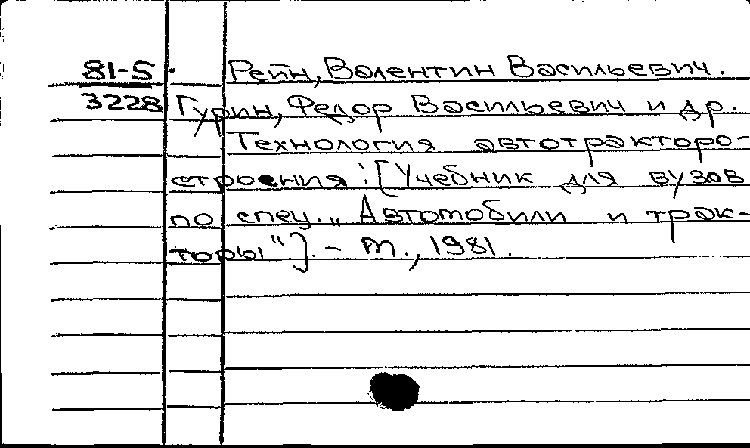 81-5 Рейн, Валентин Васильевич.
3228 Гурин, Федор Васильевич и др.
Технология автотракторо-
строения: [Учебник для вузов
по спец. „Автомобили и трак-
торы"]. - М., 1981.